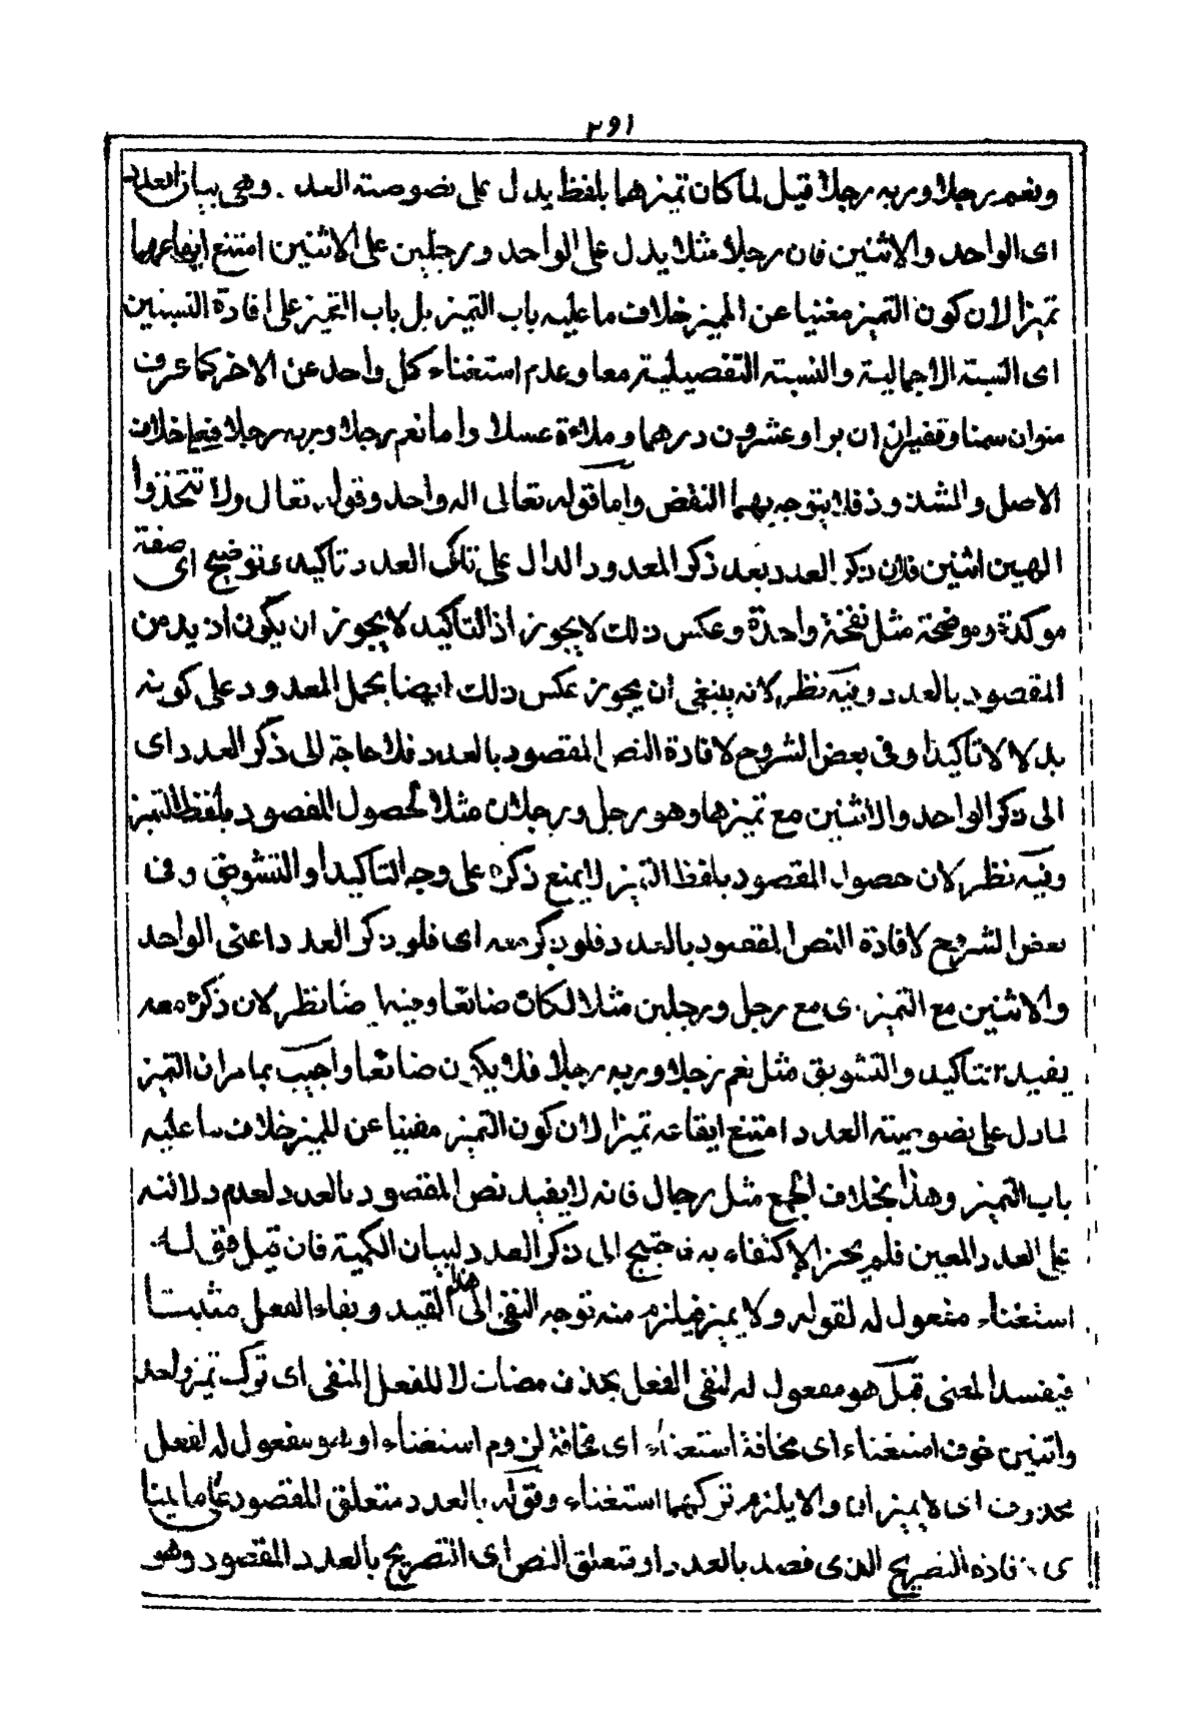 ٢٩١
ونعم رجلا وربه رجلا قيل لما كان تميزهما بلفظ يدل على نصوصته العدد . وهى بيان العدد
اى الواحد والاثنين فان رجلا مثلا يدل على الواحد ورجلين على الاثنين امتنع ايقاعهما
تميزا لان كون التميز مغنيا عن المميز خلاف ما عليه باب التميز بل باب التميز على افادة النسبتين
اى النسبته الاجمالية والنسبته التفصيلية معا وعدم استغناء كل واحد عن الاخر كما عرف
منوان سمنا وقفيزان برا وعشرون درهما وملاءة عسلا واما نعم رجلا وربه رجلا فيما خلاف
الاصل والشذوذ فلا يتوجه بهما النقض واما قوله تعالى اله واحد وقوله تعالى ولا تتخذوا
الهين اثنين فلان ذكر العدد بعد ذكر المعدود الدال على تلك العدد تاكيد وتوضيح اى صفة
موكدة وموضحة مثل نفخة واحدة وعكس ذلك لا يجوز اذ التاكيد لا يجوز ان يكون ازيد من
المقصود بالعدد وفيه نظر لانه ينبغى ان يجوز عكس ذلك ايضا بحمل المعدود على كونه
بدلا لا تاكيدا وفى بعض الشروح لافادة النص المقصود بالعدد فلا حاجة الى ذكر العدد اى
الى ذكر الواحد والاثنين مع تميزها وهو رجل ورجلان مثلا لحصول المقصود بلفظ التميز
وفيه نظر لان حصول المقصود بلفظ التميز لا يمنع ذكره على وجه التاكيد او التشويق وفى
بعض الشروح لافادة النص المقصود بالعدد فلو ذكر معه اى فلو ذكر العدد اعنى الواحد
والاثنين مع التميز اى مع رجل ورجلين مثلا لكان ضائعا وفيه ايضا نظر لان ذكره معه
يفيد التاكيد والتشويق مثل نعم رجلا وربه رجلا فلا يكون ضائعا واجيب بما مر ان التميز
لما دل على نصوصيته العدد امتنع ايقاعه تميزا لان كون التميز مغنيا عن المميز خلاف ما عليه
باب التميز وهذا بخلاف الجمع مثل رجال فانه لا يفيد نص المقصود بالعدد لعدم دلالته
على العدد المعين فلم يجز الاكتفاء به فاحتيج الى ذكر العدد لبيان الكمية فان قيل فقوله
استغناء مفعول له لقوله ولا يميز فيلزم منه توجه النفى الى القيد وبقاء الفعل مثبتا
فيفسد المعنى قيل هو مفعول له لنفى الفعل بحذف مضاف لا للفعل المنفى اى ترك تميز واحد
واثنين خوف استغناء اى مخافة استغناء اى مخافة لزوم استغناء او هو مفعول له لفعل
محذوف اى لا يميزان والا يلزم تركهما استغناء وقوله بالعدد متعلق المقصود على ما بينا
اى لافادة التصريح الذى قصد بالعدد او متعلق النص اى التصريح بالعدد المقصود وهو